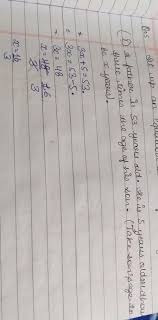 Q3. Set up an equation
(1) A father is 53 years old. He is 5 years older than
three times the age of his son. (Take son's age to
be x years).
= 3x+5 = 53.
= 3x = 53-5.
= 3x = 48
x = 48 16
3
x = 16
3